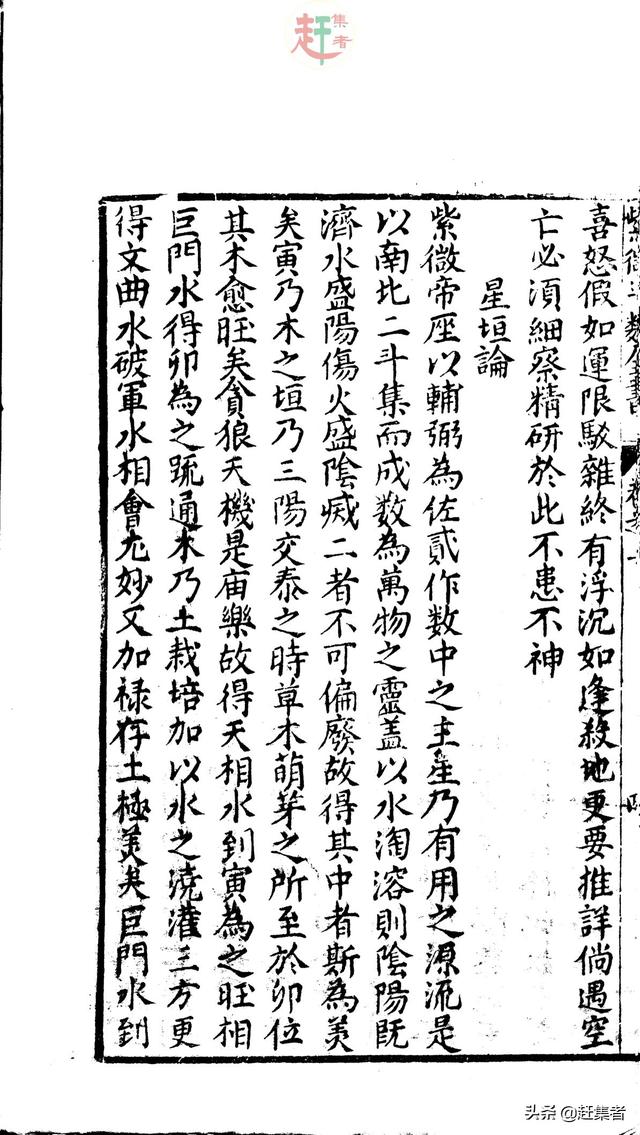 赶集者
喜怒假如運限駁雜終有浮沉如逢殺地更要推詳倘遇空
亡必須細察精研於此不患不神
星垣論
紫微帝座以輔弼為佐貳作数中之主星乃有用之源流是
以南北二斗集而成数為萬物之靈盖以水淘溶則陰陽既
濟水盛陽傷火盛陰滅二者不可偏廢故得其中者斯為美
矣寅乃木之垣乃三陽交泰之時草木萌芽之所至於卯位
其木愈旺矣貪狼天機是庙樂故得天相水到寅為之旺相
巨門水得卯為之疏通木乃土栽培加以水之澆灌三方更
得文曲水破軍水相會尤妙又加禄存土極美矣巨門水到
头条@赶集者